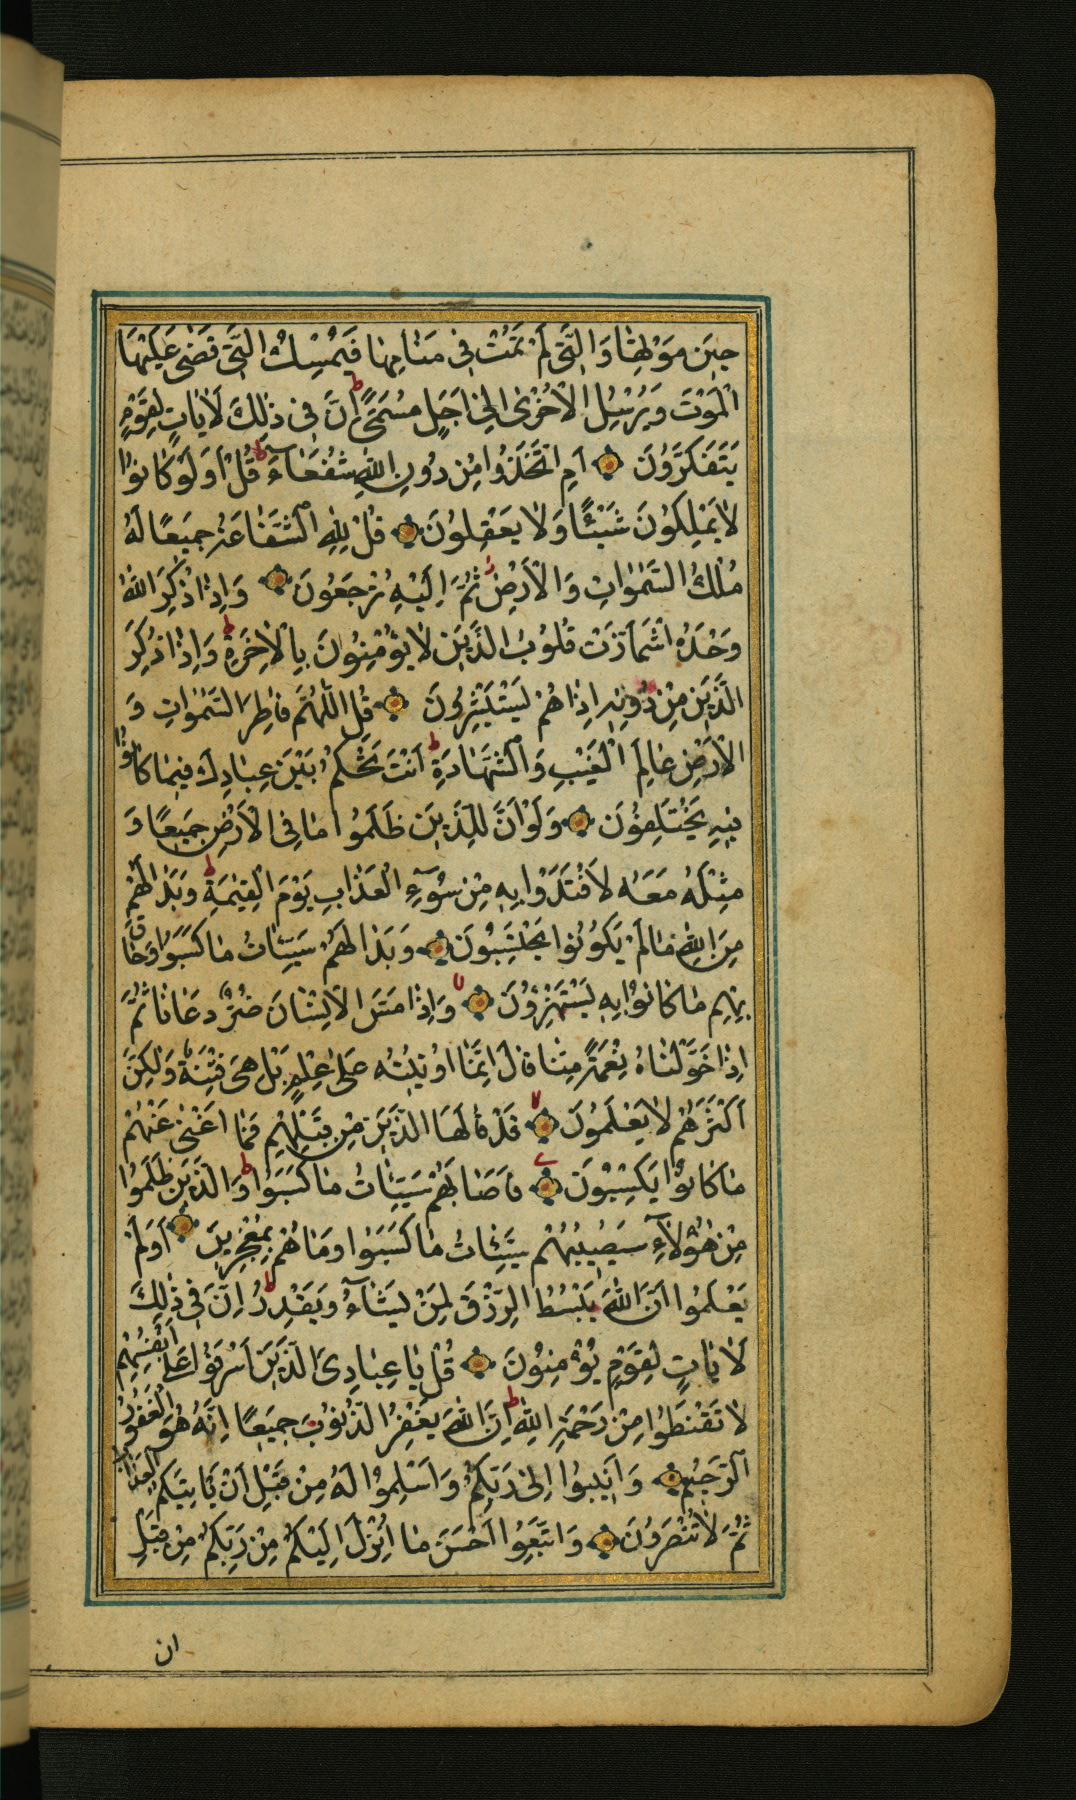 حِينَ مَوْتِهٰا وَالَّتِى لَمْ تَمُتْ فِى مَنٰامِهٰا فَيُمْسِكُ الَّتِى قَضٰى عَلَيْهَا
الْمَوْتَ وَيُرْسِلُ الْاُخْرٰى اِلٰى اَجَلٍ مُسَمًّى ط اِنَّ فِى ذٰلِكَ لَاٰيٰاتٍ لِقَوْمٍ
يَتَفَكَّرُونَ اَمِ اتَّخَذُوا مِنْ دُونِ اللّٰهِ شُفَعٰاۤءَ ط قُلْ اَوَلَوْ كٰانُوا
لٰا يَمْلِكُونَ شَيْئًا وَلٰا يَعْقِلُونَ قُلْ لِلّٰهِ الشَّفٰاعَةُ جَمِيعًا لَهُ
مُلْكُ السَّمٰوٰاتِ وَالْاَرْضِ ثُمَّ اِلَيْهِ تُرْجَعُونَ وَاِذٰا ذُكِرَ اللّٰهُ
وَحْدَهُ اشْمَاَزَّتْ قُلُوبُ الَّذِينَ لٰا يُؤْمِنُونَ بِالْاٰخِرَةِ ط وَاِذٰا ذُكِرَ
الَّذِينَ مِنْ دُونِهِ اِذٰا هُمْ يَسْتَبْشِرُونَ قُلِ اللّٰهُمَّ فٰاطِرَ السَّمٰوٰاتِ وَ
الْاَرْضِ عٰالِمَ الْغَيْبِ وَالشَّهٰادَةِ ط اَنْتَ تَحْكُمُ بَيْنَ عِبٰادِكَ فِيمٰا كٰانُوا
فِيهِ يَخْتَلِفُونَ وَلَوْ اَنَّ لِلَّذِينَ ظَلَمُوا مٰا فِى الْاَرْضِ جَمِيعًا وَ
مِثْلَهُ مَعَهُ لَافْتَدَوْا بِهِ مِنْ سُوۤءِ الْعَذٰابِ يَوْمَ الْقِيٰمَةِ ط وَبَدٰا لَهُمْ
مِنَ اللّٰهِ مٰا لَمْ يَكُونُوا يَحْتَسِبُونَ وَبَدٰا لَهُمْ سَيِّئٰاتُ مٰا كَسَبُوا وَحٰاقَ
بِهِمْ مٰا كٰانُوا بِهِ يَسْتَهْزِؤُنَ وَاِذٰا مَسَّ الْاِنْسٰانَ ضُرٌّ دَعٰانٰا ثُمَّ
اِذٰا خَوَّلْنٰاهُ نِعْمَةً مِنّٰا قٰالَ اِنَّمٰا اُوتِيتُهُ عَلٰى عِلْمٍ بَلْ هِىَ فِتْنَةٌ وَلٰكِنَّ
اَكْثَرَهُمْ لٰا يَعْلَمُونَ قَدْ قٰالَهَا الَّذِينَ مِنْ قَبْلِهِمْ فَمٰا اَغْنٰى عَنْهُمْ
مٰا كٰانُوا يَكْسِبُونَ فَاَصٰابَهُمْ سَيِّئٰاتُ مٰا كَسَبُوا ط وَالَّذِينَ ظَلَمُوا
مِنْ هٰؤُلٰاۤءِ سَيُصِيبُهُمْ سَيِّئٰاتُ مٰا كَسَبُوا وَمٰا هُمْ بِمُعْجِزِينَ اَوَلَمْ
يَعْلَمُوا اَنَّ اللّٰهَ يَبْسُطُ الرِّزْقَ لِمَنْ يَشٰاۤءُ وَيَقْدِرُ ط اِنَّ فِى ذٰلِكَ
لَاٰيٰاتٍ لِقَوْمٍ يُؤْمِنُونَ قُلْ يٰا عِبٰادِىَ الَّذِينَ اَسْرَفُوا عَلٰى اَنْفُسِهِمْ
لٰا تَقْنَطُوا مِنْ رَحْمَةِ اللّٰهِ ط اِنَّ اللّٰهَ يَغْفِرُ الذُّنُوبَ جَمِيعًا اِنَّهُ هُوَ الْغَفُورُ
الرَّحِيمُ وَاَنِيبُوا اِلٰى رَبِّكُمْ وَاَسْلِمُوا لَهُ مِنْ قَبْلِ اَنْ يَاْتِيَكُمُ الْعَذٰابُ
ثُمَّ لٰا تُنْصَرُونَ وَاتَّبِعُوا اَحْسَنَ مٰا اُنْزِلَ اِلَيْكُمْ مِنْ رَبِّكُمْ مِنْ قَبْلِ
ان